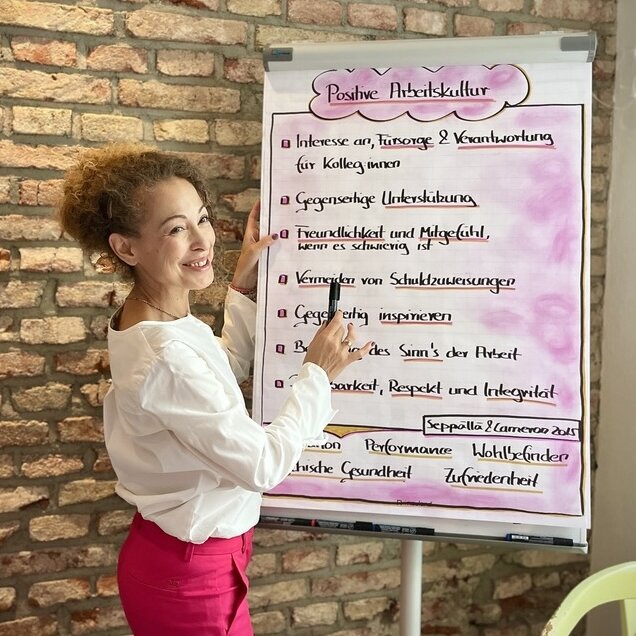 Positive Arbeitskultur
Interesse an, Fürsorge & Verantwortung
für Kolleg:innen
Gegenseitige Unterstützung
Freundlichkeit und Mitgefühl,
wenn es schwierig ist
Vermeiden von Schuldzuweisungen
inspirieren
des Sinn's der Arbeit
Respekt und Integrität
Seppälä & Cameron 2015
Performance Wohlbefinden
Gesundheit Zufriedenheit